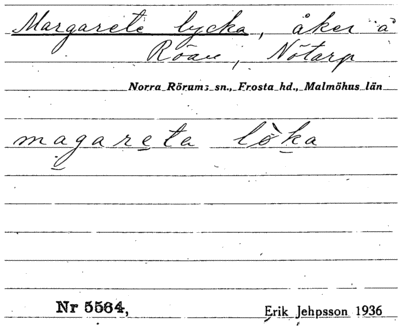 Margarete lycka, åker å
Röan, Nötarp
Norra Rörums sn., Frosta hd., Malmöhus län
magareta lòka
Nr 5564,
Erik Jehpsson 1936